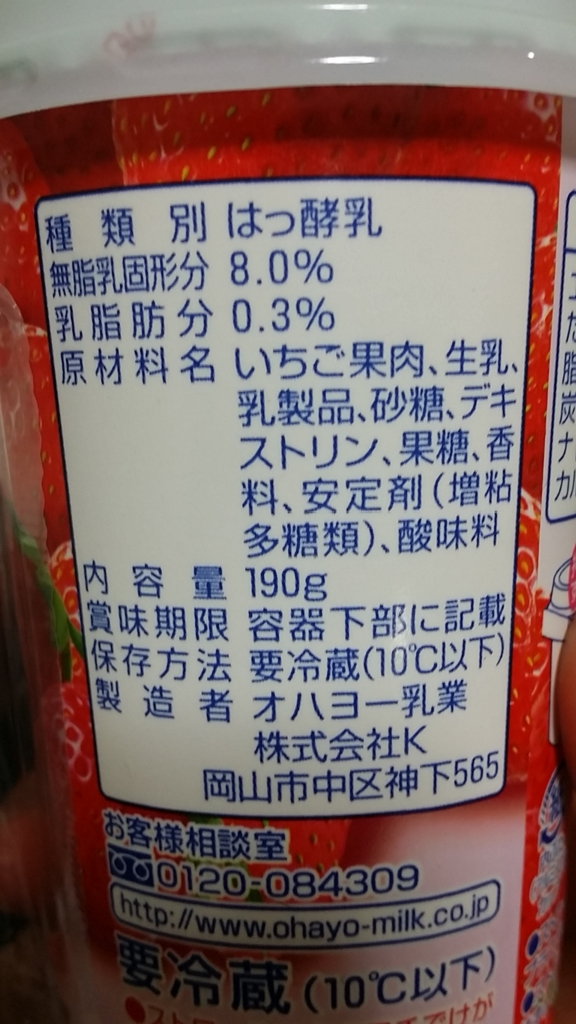 種類別 はっ酵乳
無脂乳固形分 8.0%
乳脂肪分 0.3%
原材料名 いちご果肉、生乳、
乳製品、砂糖、デキ
ストリン、果糖、香
料、安定剤(増粘
多糖類)、酸味料
内容量 190g
賞味期限 容器下部に記載
保存方法 要冷蔵(10℃以下)
製造者 オハヨー乳業
株式会社K
岡山市中区神下565
お客様相談室
0120-084309
http://www.ohayo-milk.co.jp
要冷蔵(10℃以下)